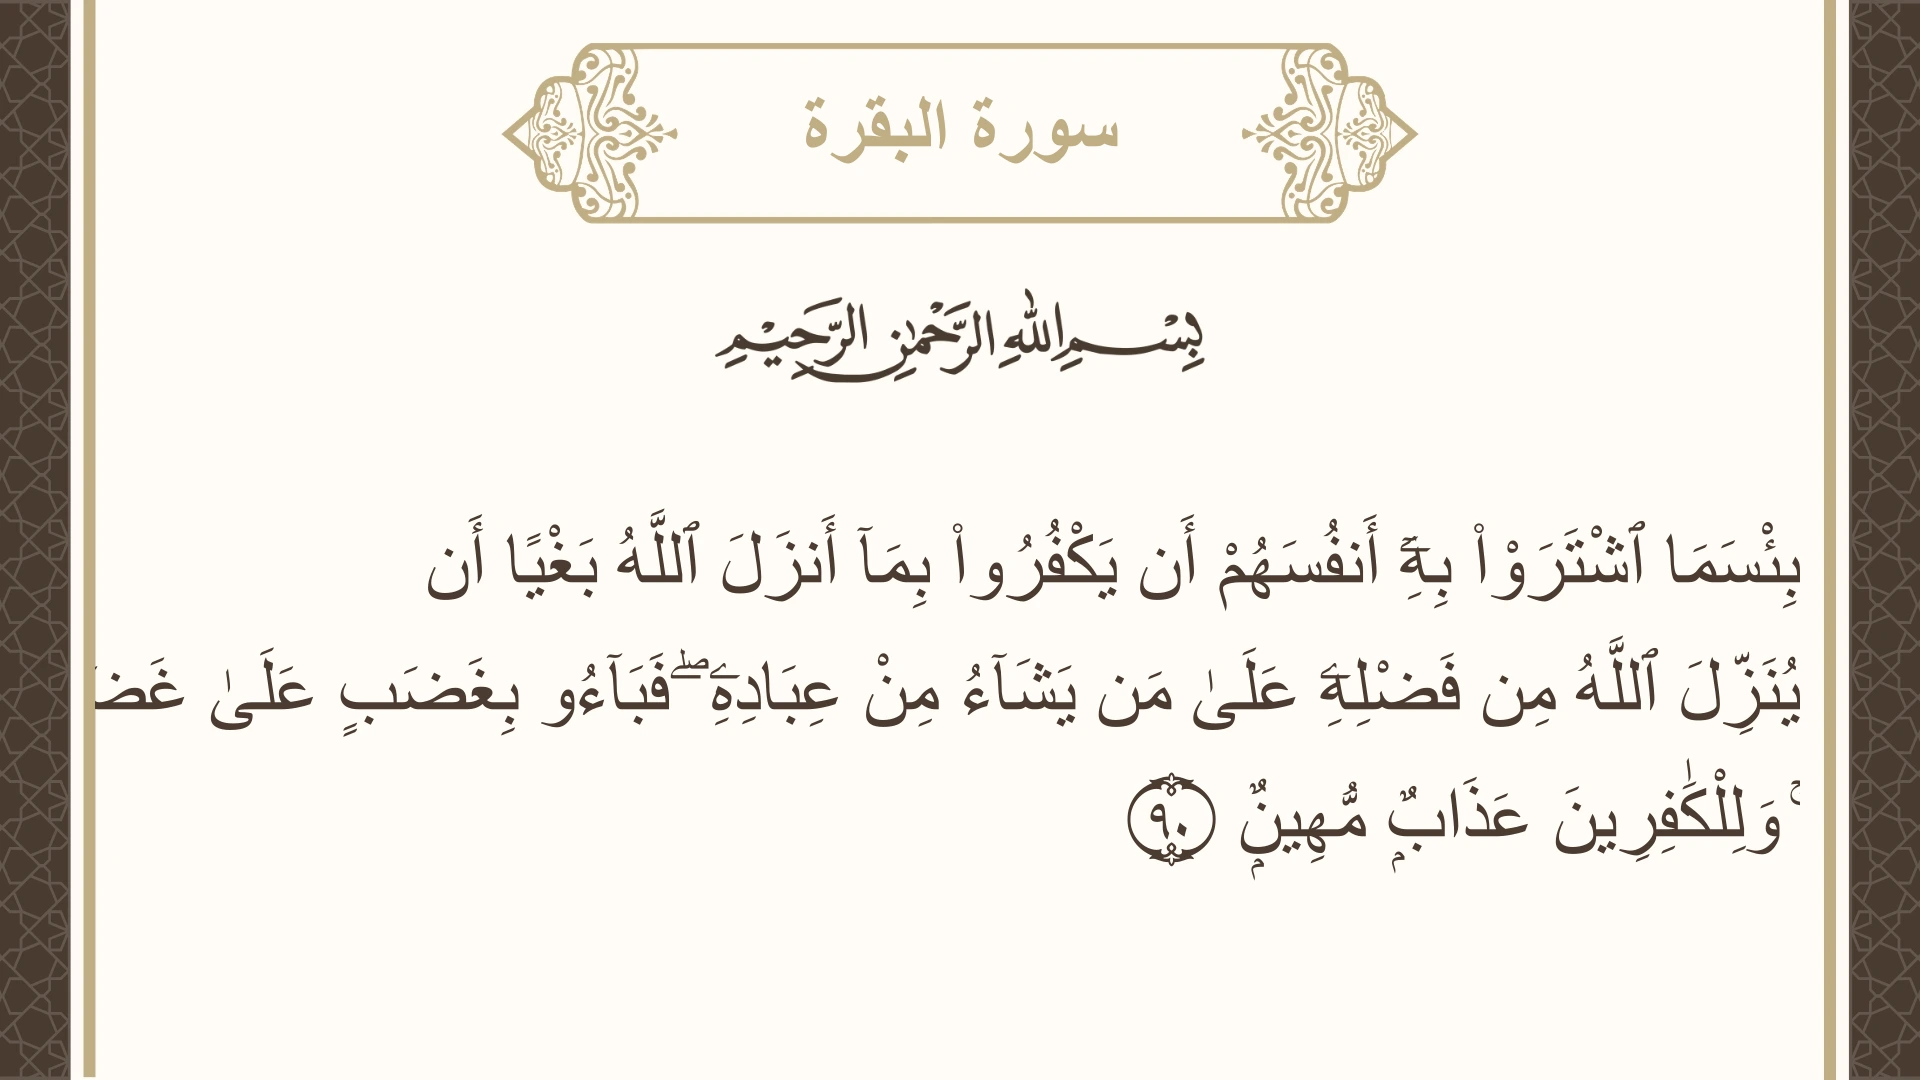 سورة البقرة
بِسْمِ اللهِ الرَّحْمٰنِ الرَّحِيْمِ
بِئْسَمَا ٱشْتَرَوْا۟ بِهِۦٓ أَنفُسَهُمْ أَن يَكْفُرُوا۟ بِمَآ أَنزَلَ ٱللَّهُ بَغْيًا أَن
يُنَزِّلَ ٱللَّهُ مِن فَضْلِهِۦ عَلَىٰ مَن يَشَآءُ مِنْ عِبَادِهِۦ ۖ فَبَآءُو بِغَضَبٍ عَلَىٰ
ۚ وَلِلْكَٰفِرِينَ عَذَابٌ مُّهِينٌ ٩٠